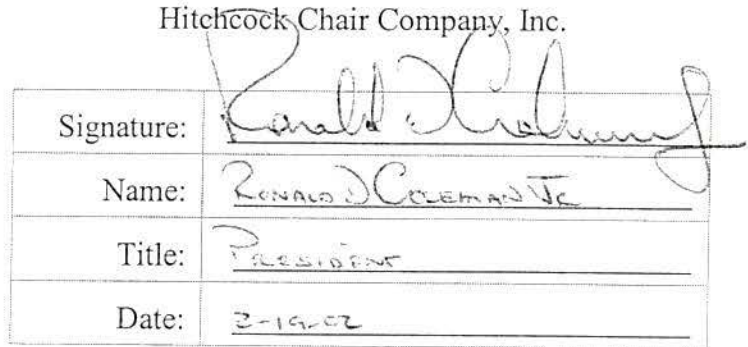 Hitchcock Chair Company, Inc.
Signature: Ronald D Coleman Jr
Name: RONALD D COLEMAN JR
Title: PRESIDENT
Date: 2-19-02